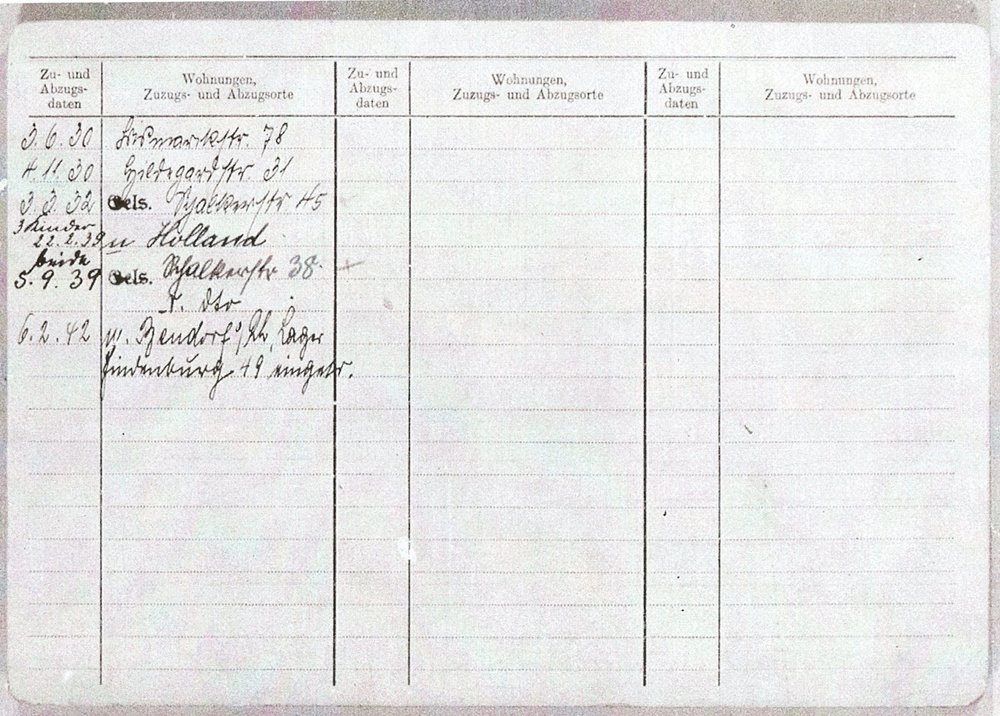 Zu- und Abzugs- daten
Wohnungen, Zuzugs- und Abzugsorte
Zu- und Abzugs- daten
Wohnungen, Zuzugs- und Abzugsorte
Zu- und Abzugs- daten
Wohnungen, Zuzugs- und Abzugsorte
3.6.30 Bismarckstr. 78
4.11.30 Hildegardstr. 31
3.3.32 Gels. Schalkerstr. 45
3 Kinder
22.2.39 n Holland
beide
5.9.39 Gels. Schalkerstr 38
dto
6.2.42 n. Bendorf/Rh, Lager
Hindenburg 49 eingetr.